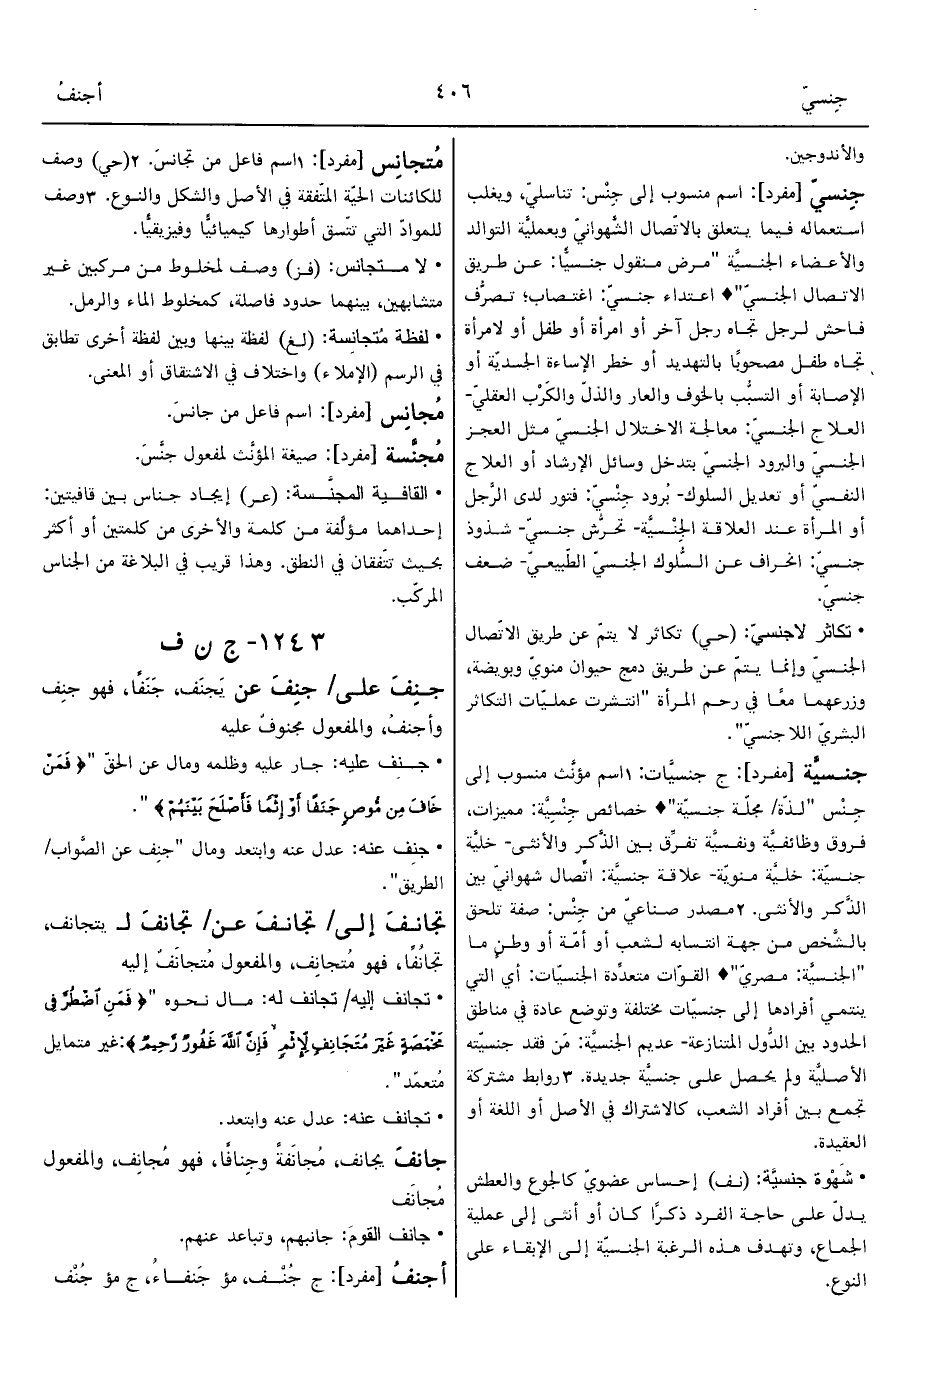 جِنسيّ
٤٠٦
أجنفُ
والأندوجين.
جِنسيّ [مفرد]: اسم منسوب إلى جِنْس: تناسليّ، ويغلب
استعماله فيما يتعلق بالاتّصال الشَّهوانيّ وبعمليَّة التوالد
والأعضاء الجنسيَّة "مرض منقول جنسيًّا: عن طريق
الاتصال الجنسيّ"♦ اعتداء جنسيّ: اغتصاب؛ تصرُّف
فاحش لرجل تجاه رجل آخر أو امرأة أو طفل أو لامرأة
تجاه طفل مصحوبًا بالتهديد أو خطر الإساءة الجسديّة أو
الإصابة أو التسبُّب بالخوف والعار والذلّ والكَرْب العقليّ-
العلاج الجنسيّ: معالجة الاختلال الجنسيّ مثل العجز
الجنسيّ والبرود الجنسيّ بتدخل وسائل الإرشاد أو العلاج
النفسيّ أو تعديل السلوك- بُرود جِنْسيّ: فتور لدى الرَّجل
أو المرأة عند العلاقة الجِنْسيَّة- تحرُّش جنسيّ- شذوذ
جنسيّ: انحراف عن السُّلوك الجنسيّ الطَّبيعيّ- ضعف
جنسيّ.
• تكاثر لاجنسيّ: (حي) تكاثر لا يتمّ عن طريق الاتّصال
الجنسيّ وإنما يتمّ عن طريق دمج حيوان منويّ وبويضة،
وزرعهما معًا في رحم المرأة "انتشرت عمليّات التكاثر
البشريّ اللاجنسيّ".
جنسيَّة [مفرد]: ج جنسيَّات: ١اسم مؤنَّث منسوب إلى
جِنْس "لذّة/ مجلّة جنسيّة"♦ خصائص جِنْسِيَّة: مميزات،
فروق وظائفيَّة ونفسيَّة تفرِّق بين الذَّكر والأنثى- خليَّة
جنسيّة: خليَّة منويّة- علاقة جنسيَّة: اتِّصال شهوانيّ بين
الذَّكر والأنثى. ٢مصدر صناعيّ من جِنْس: صفة تلحق
بالشَّخص من جهة انتسابه لشعب أو أمّة أو وطنٍ ما
"الجنسيَّة: مصريّ"♦ القوّات متعدَّدة الجنسيّات: أي التي
ينتمي أفرادها إلى جنسيّات مختلفة وتوضع عادة في مناطق
الحدود بين الدُّول المتنازعة- عديم الجنسيَّة: مَن فقد جنسيّته
الأصليَّة ولم يحصل على جنسيَّة جديدة. ٣روابط مشتركة
تجمع بين أفراد الشعب، كالاشتراك في الأصل أو اللغة أو
العقيدة.
• شَهْوة جنسيَّة: (نف) إحساس عضويّ كالجوع والعطش
يدلّ على حاجة الفرد ذكرًا كان أو أنثى إلى عملية
الجماع، وتهدف هذه الرغبة الجنسيّة إلى الإبقاء على
النوع.
مُتجانِس [مفرد]: ١اسم فاعل من تجانسَ. ٢(حي) وصف
للكائنات الحيّة المتّفقة في الأصل والشكل والنوع. ٣وصف
للموادّ التي تتّسق أطوارها كيميائيًّا وفيزيقيًّا.
• لا متجانس: (فز) وصف لمخلوط من مركبين غير
متشابهين، بينهما حدود فاصلة، كمخلوط الماء والرمل.
• لفظة مُتجانسة: (لغ) لفظة بينها وبين لفظة أخرى تطابق
في الرسم (الإملاء) واختلاف في الاشتقاق أو المعنى.
مُجانِس [مفرد]: اسم فاعل من جانسَ.
مُجنَّسة [مفرد]: صيغة المؤنَّث لمفعول جنَّسَ.
• القافية المجنَّسة: (عر) إيجاد جناس بين قافيتين:
إحداهما مؤلَّفة من كلمة والأخرى من كلمتين أو أكثر
بحيث تتّفقان في النطق. وهذا قريب في البلاغة من الجناس
المركّب.
١٢٤٣- ج ن ف
جنِفَ على/ جنِفَ عن يَجنَف، جَنَفًا، فهو جنِف
وأجنفُ، والمفعول مجنوفٌ عليه
• جنِف عليه: جار عليه وظلمه ومال عن الحقّ "﴿ فَمَنْ
خَافَ مِن مُوصٍ جَنَفًا أَوْ إِثْمًا فَأَصْلَحَ بَيْنَهُمْ ﴾ ".
• جنِف عنه: عدل عنه وابتعد ومال "جنِف عن الصَّواب/
الطريق".
تجانفَ إلى/ تجانفَ عن/ تجانفَ لـ يتجانف،
تجانُفًا، فهو مُتجانِف، والمفعول مُتجانَفٌ إليه
• تجانف إليه/ تجانف له: مال نحوه "﴿ فَمَنِ ٱضْطُرَّ فِي
مَخْمَصَةٍ غَيْرَ مُتَجَانِفٍ لِإِثْمٍ فَإِنَّ ٱللَّهَ غَفُورٌ رَحِيمٌ ﴾:غير متمايل
مُتعمّد".
• تجانف عنه: عدل عنه وابتعد.
جانفَ يجانف، مُجانَفةً وجِنافًا، فهو مُجانِف، والمفعول
مُجانَف
• جانف القومَ: جانبهم، وتباعد عنهم.
أجنفُ [مفرد]: ج جُنْف، مؤ جَنفاءُ، ج مؤ جُنْف